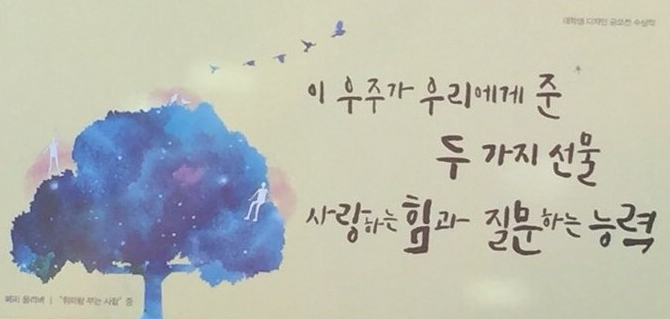 대학생 디자인 공모전 수상작
이 우주가 우리에게 준
두 가지 선물
사랑하는 힘과 질문하는 능력
메리 올리버 | "휘파람 부는 사람" 중